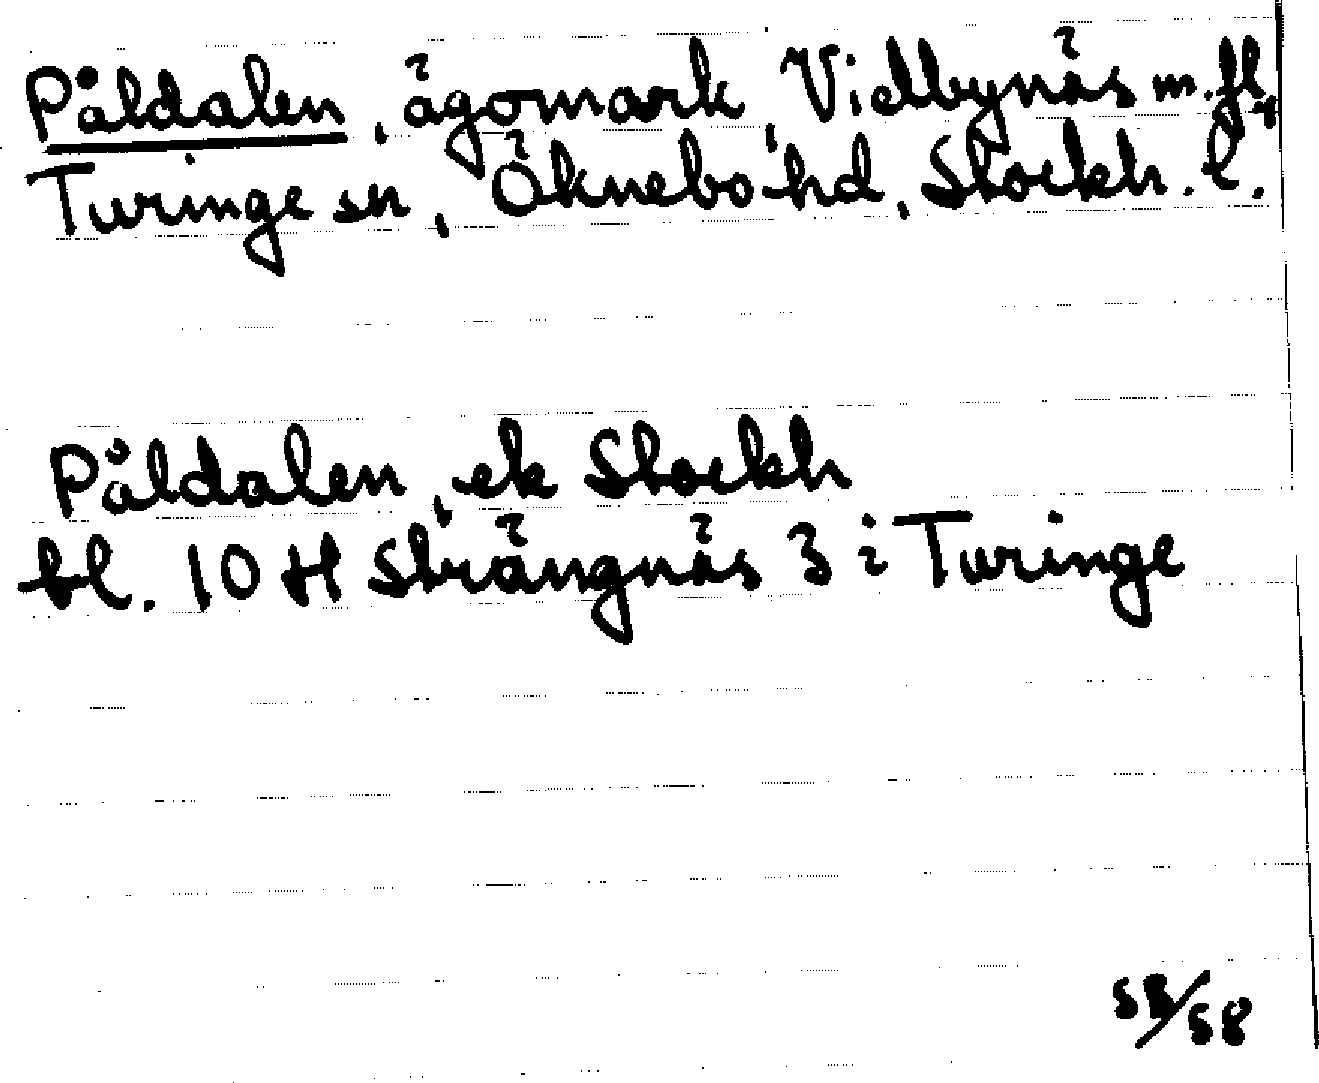 Påldalen, ägomark, Vidbynäs m.fl.,
Turinge sn, Öknebo hd, Stockh. l.
Påldalen, ek Stockh
bl. 10 H Strängnäs 3 i Turinge